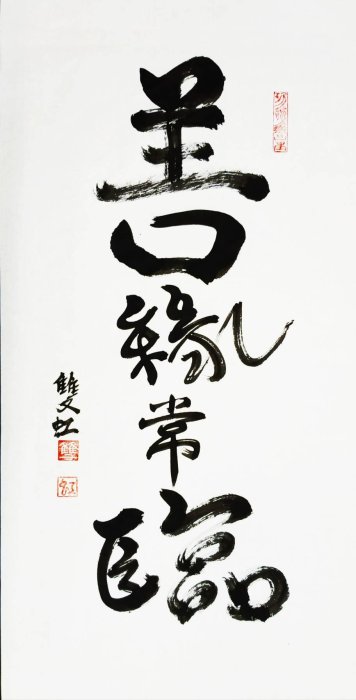 善緣常臨
雙文虹